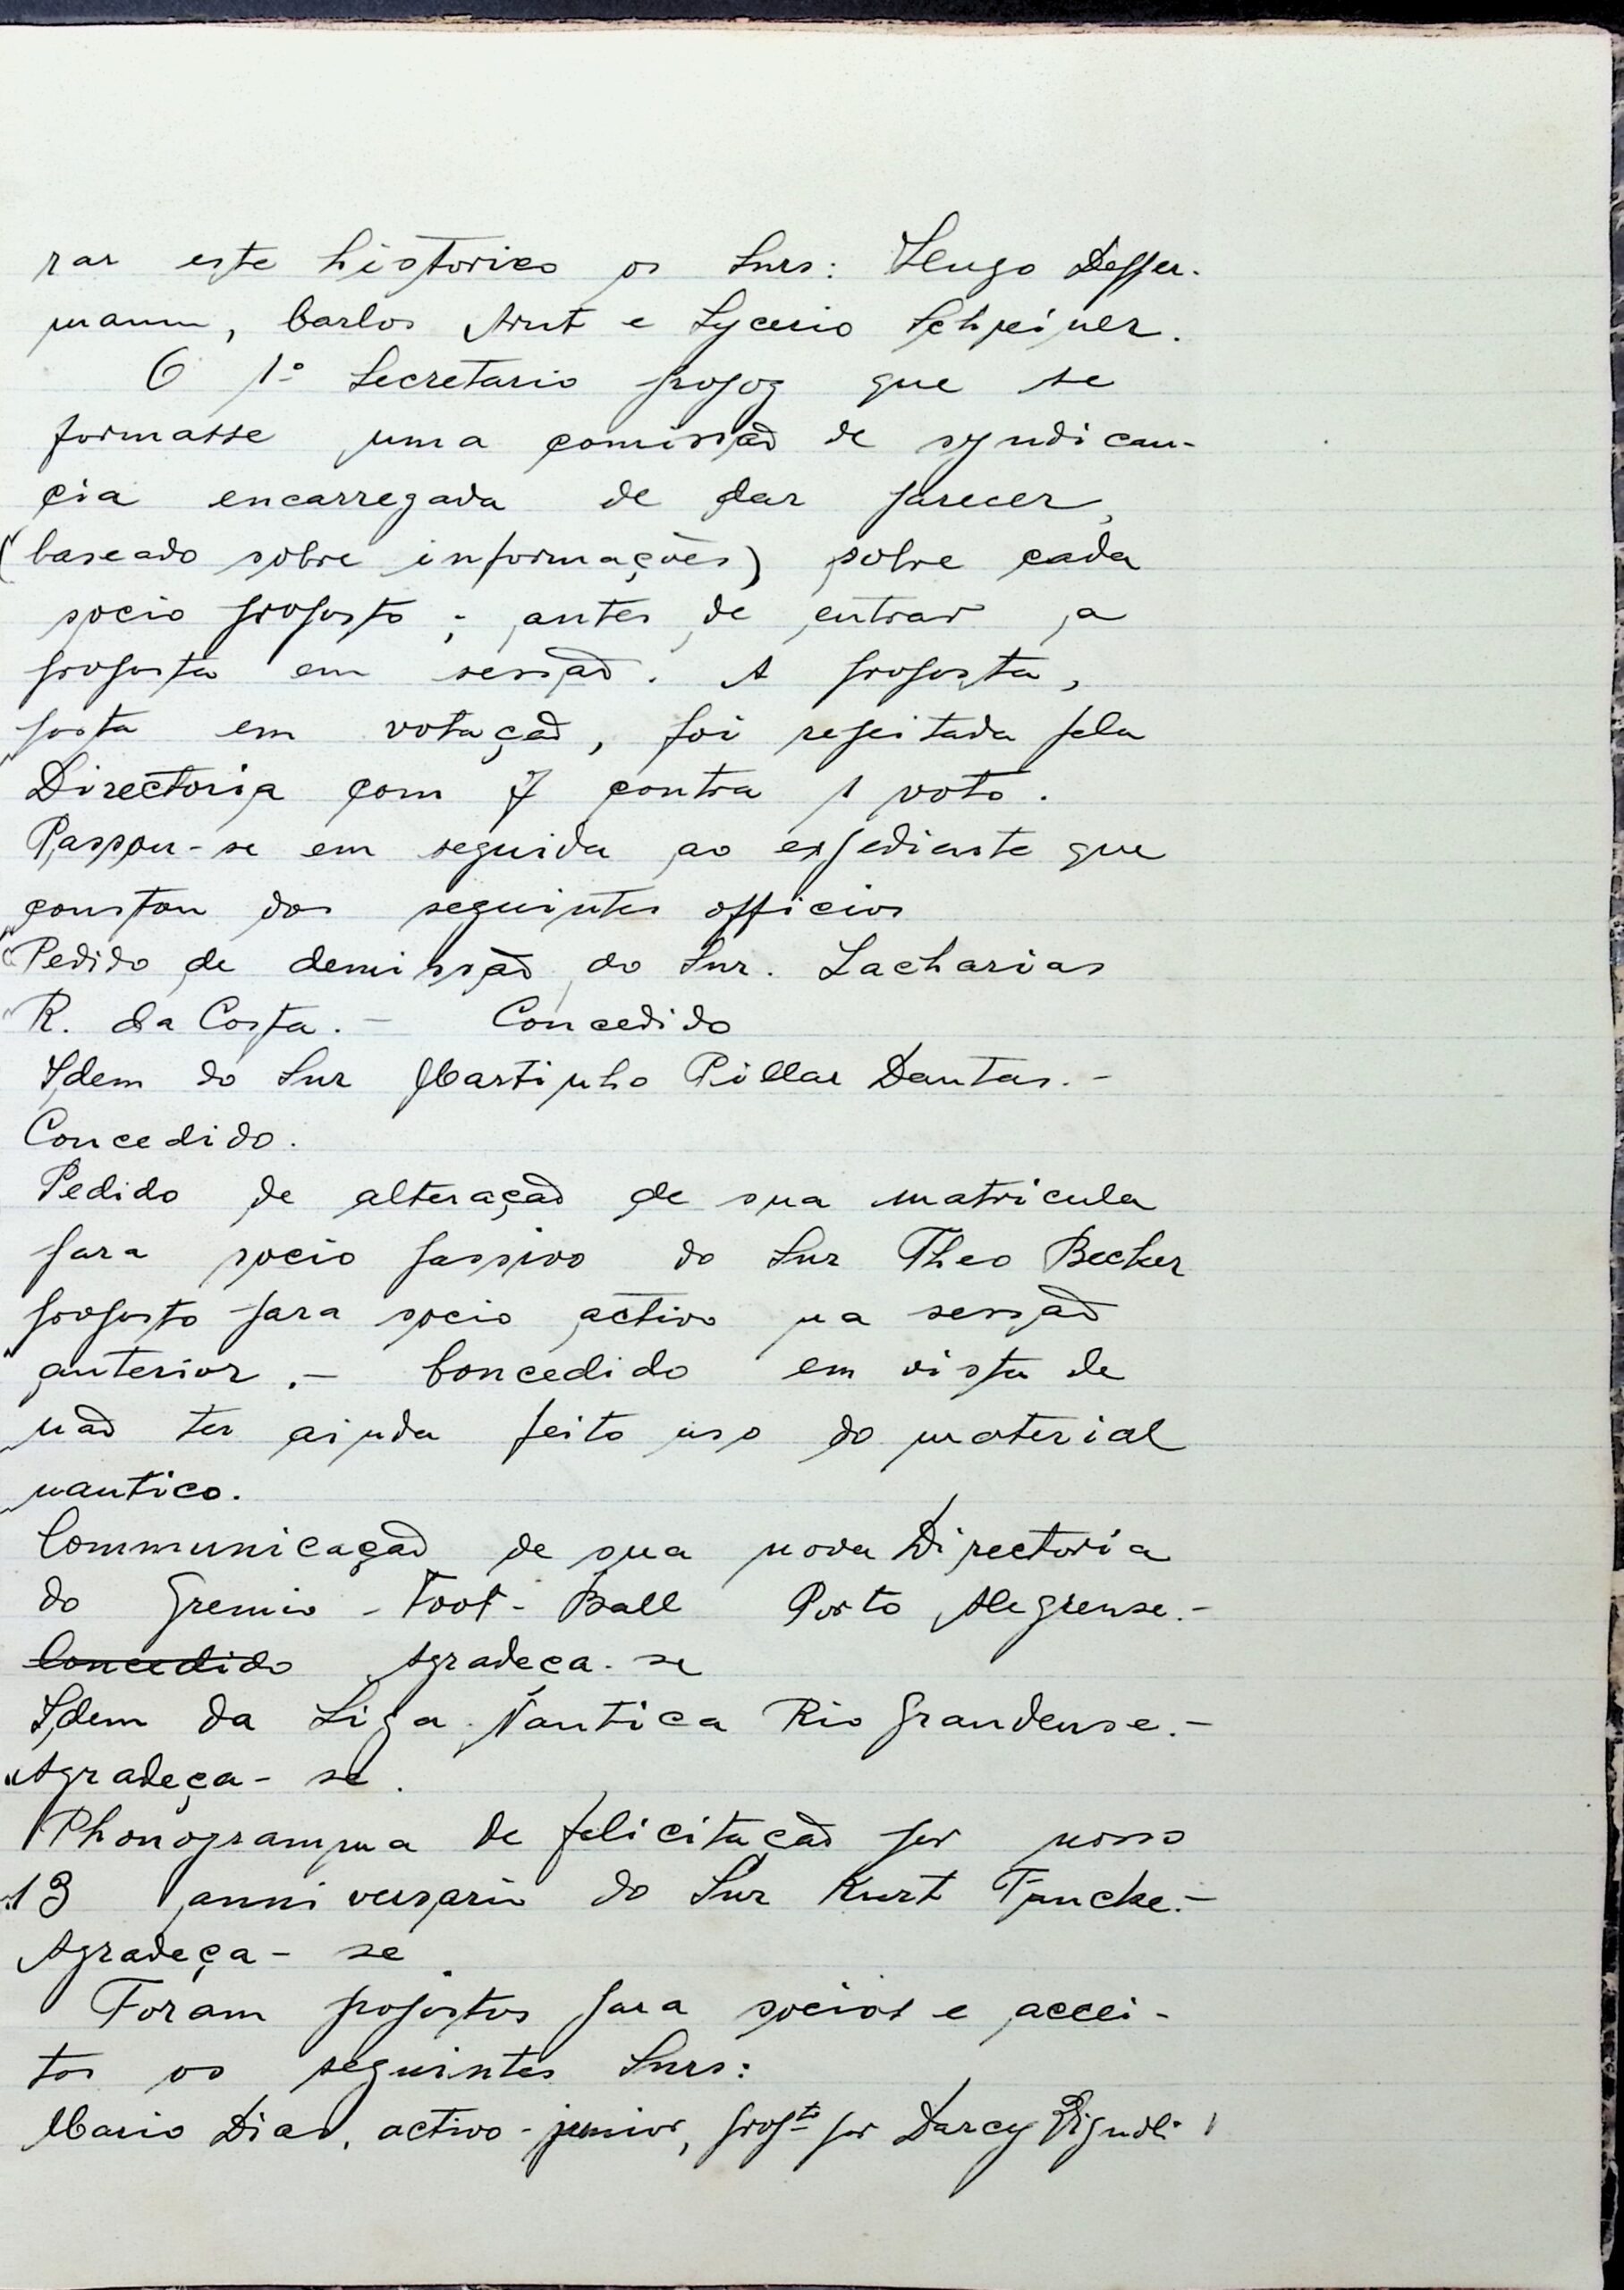 rar este historico os Snrs: Hugo Deffer-
mann, Carlos Arnt e Lycerio Schreiner.
O 1º Secretario propoz que se
formasse uma comissão de syndican-
cia encarregada de dar parecer,
(baseado sobre informações) sobre cada
socio proposto; antes de entrar a
proposta em sessão. A proposta,
posta em votação, foi rejeitada pela
Directoria com 7 contra 1 voto.
Passou-se em seguida ao expediente que
constou dos seguintes officios
Pedido de demissão do Snr. Zacharias
R. da Costa.- Concedido
Idem do Snr Martinho Pillar Dantas.-
Concedido.
Pedido de alteração de sua matricula
para socio passivo do Snr Theo Becker
proposto para socio activo na sessão
anterior.- Concedido em vista de
não ter ainda feito uso do material
nautico.
Communicação de sua nova Directoria
do Gremio-Foot-Ball Porto Alegrense.-
Concedido Agradeça-se
Idem da Liga Nautica Rio Grandense.-
Agradeça-se.
Phonogramma de felicitação por nosso
13 anniversario do Snr Kurt Funcke.-
Agradeça-se
Foram propostos para socios e accei-
tos os seguintes Snrs:
Mario Dias, activo-junior, propto por Darcy